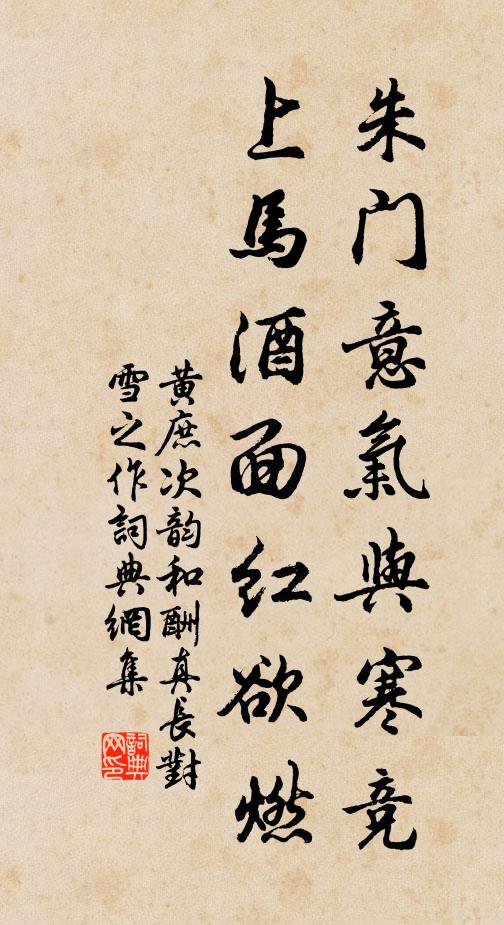 朱门意氣與寒竞
上馬酒面红欲燃
黄庶次韵和酬真長對
雪之作詞典網集
詞典網印